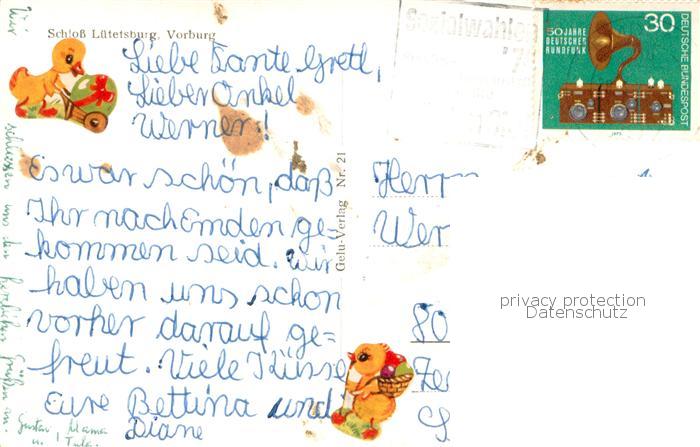 Schloß Lütetsburg, Vorburg
Liebe Tante Gretl,
Lieber Onkel
Werner!
Es war schön, daß
Ihr nach Emden ge=
kommen seid. Wir
haben uns schon
vorher darauf ge=
freut. Viele Küsse
Eure Bettina und
Diane
Wir
schließen uns den herzlichen Grüßen an.
Gustav, Mama
u.
Gelu-Verlag Nr. 21
Sozialwahlen
50 JAHRE
DEUTSCHER
RUNDFUNK
30
DEUTSCHE BUNDESPOST
1973
Herrn
Wer
80
privacy protection
Datenschutz